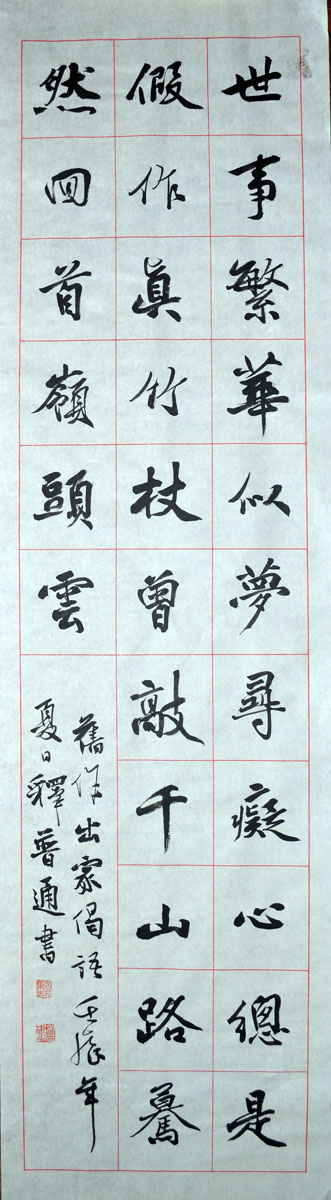 世事繁華似夢尋癡心總是
假作真竹杖曾敲千山路驀
然回首嶺頭雲
舊作出家偈語壬辰年
夏日釋普通書